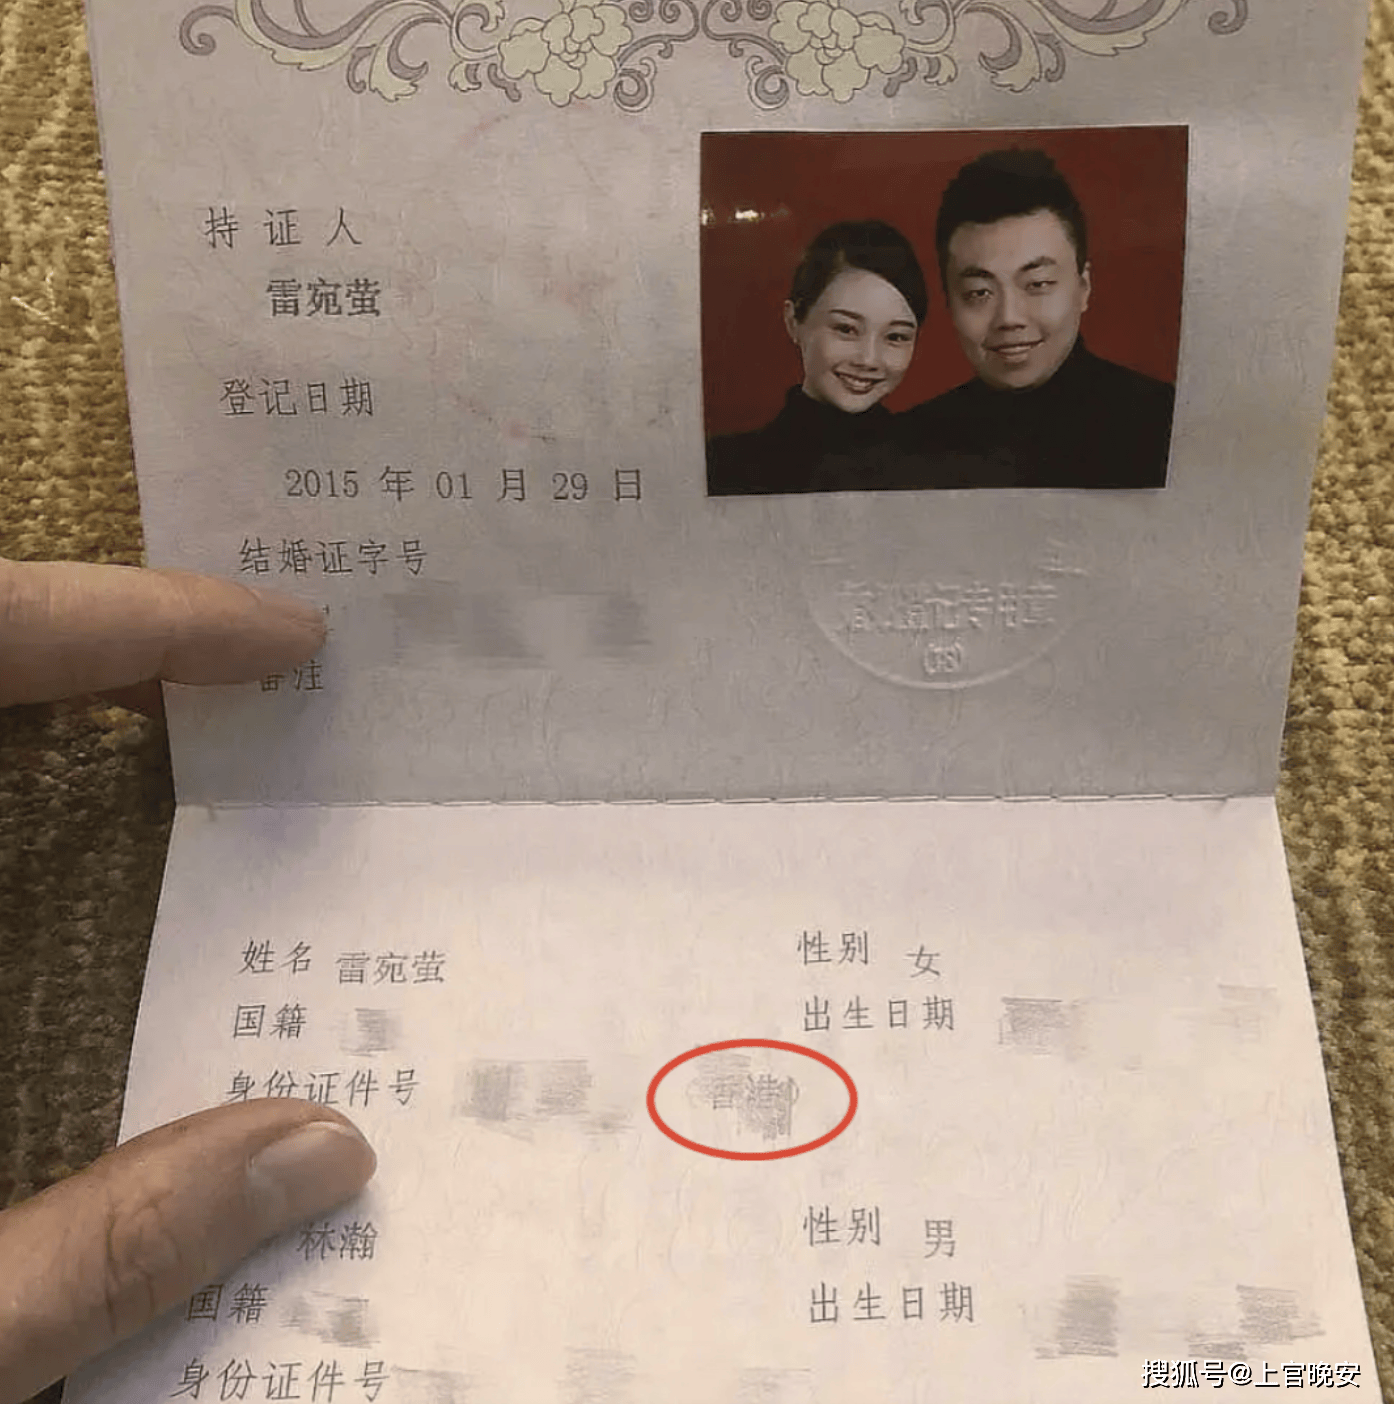 持证人
雷宛萤
登记日期
2015 年 01 月 29 日
结婚证字号
备注
登记专用章
姓名 雷宛萤 性别 女
国籍 出生日期
身份证件号 香港
林瀚 性别 男
国籍 出生日期
身份证件号
搜狐号@上官晚安